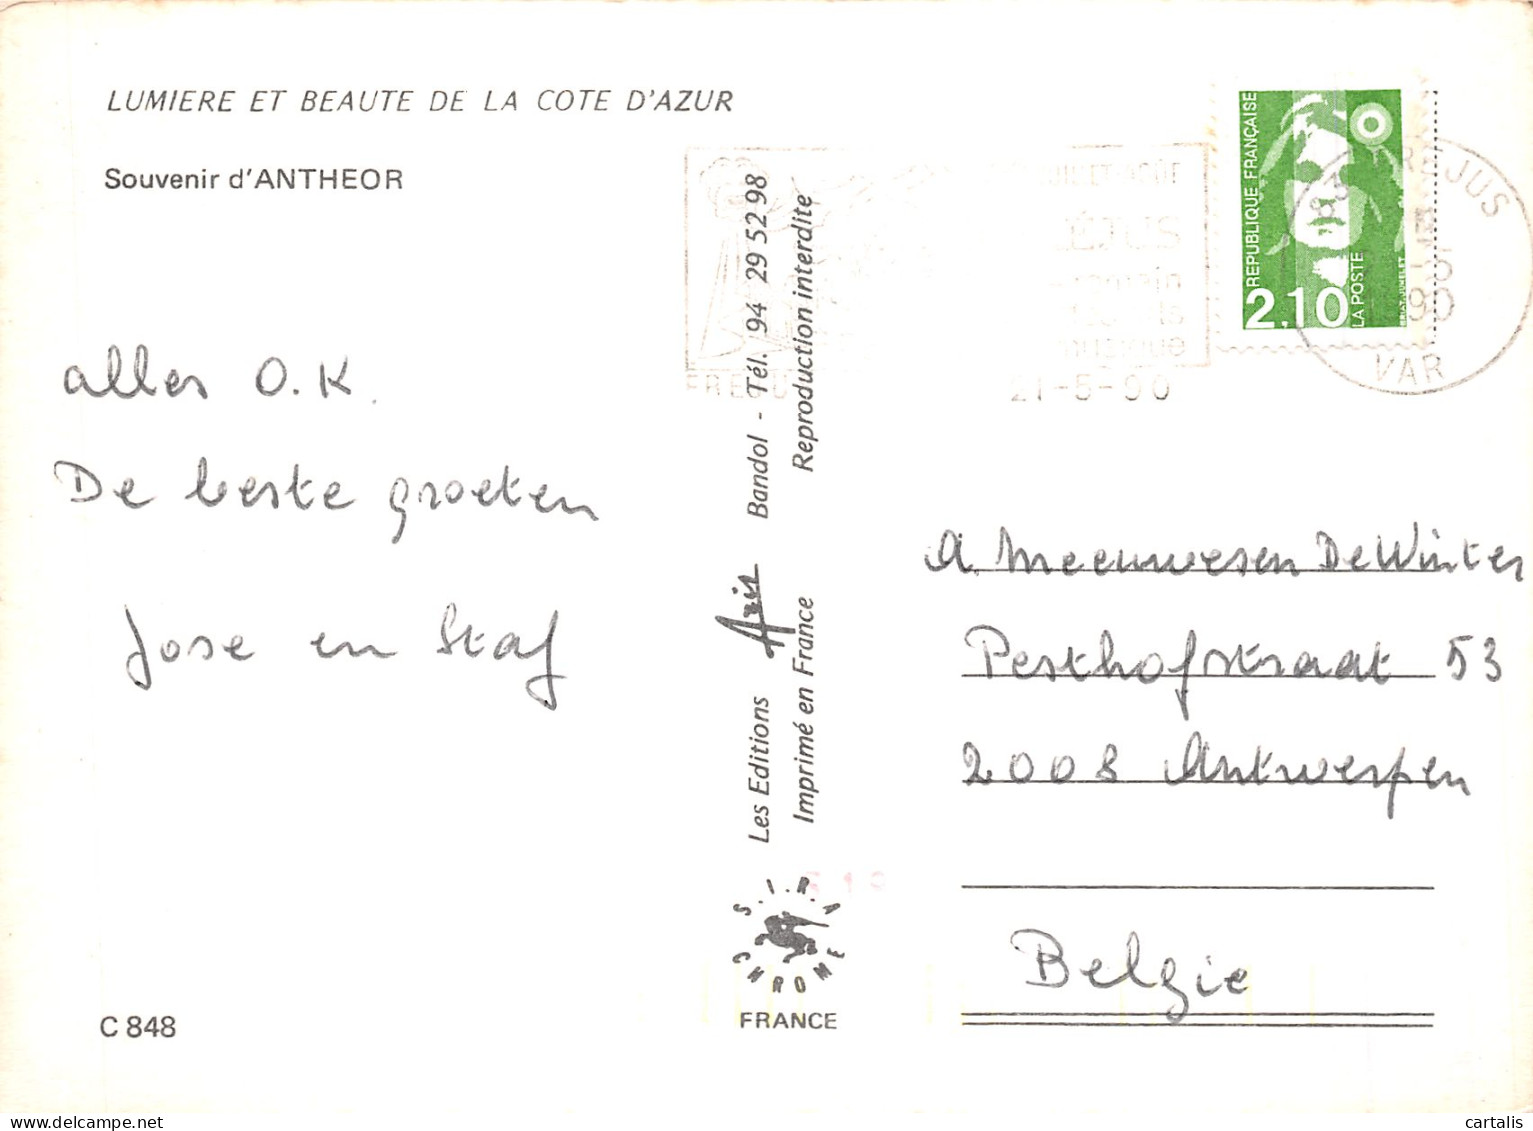 LUMIERE ET BEAUTE DE LA COTE D'AZUR
Souvenir d'ANTHEOR
alles O.K.
De beste groeten
Jose en Staf
C 848
Les Editions Aris Bandol - Tél. 94 29 52 98
Imprimé en France Reproduction interdite
S.I.R.A
CHROME
FRANCE
JUILLET AOÛT
FRÉJUS
romain
musique
21-5-90
REPUBLIQUE FRANÇAISE
2,10
LA POSTE
83 FREJUS
90
VAR
A. Meeuwesen De Winter
Pesthofstraat 53
2008 Antwerpen
Belgie
cartalis